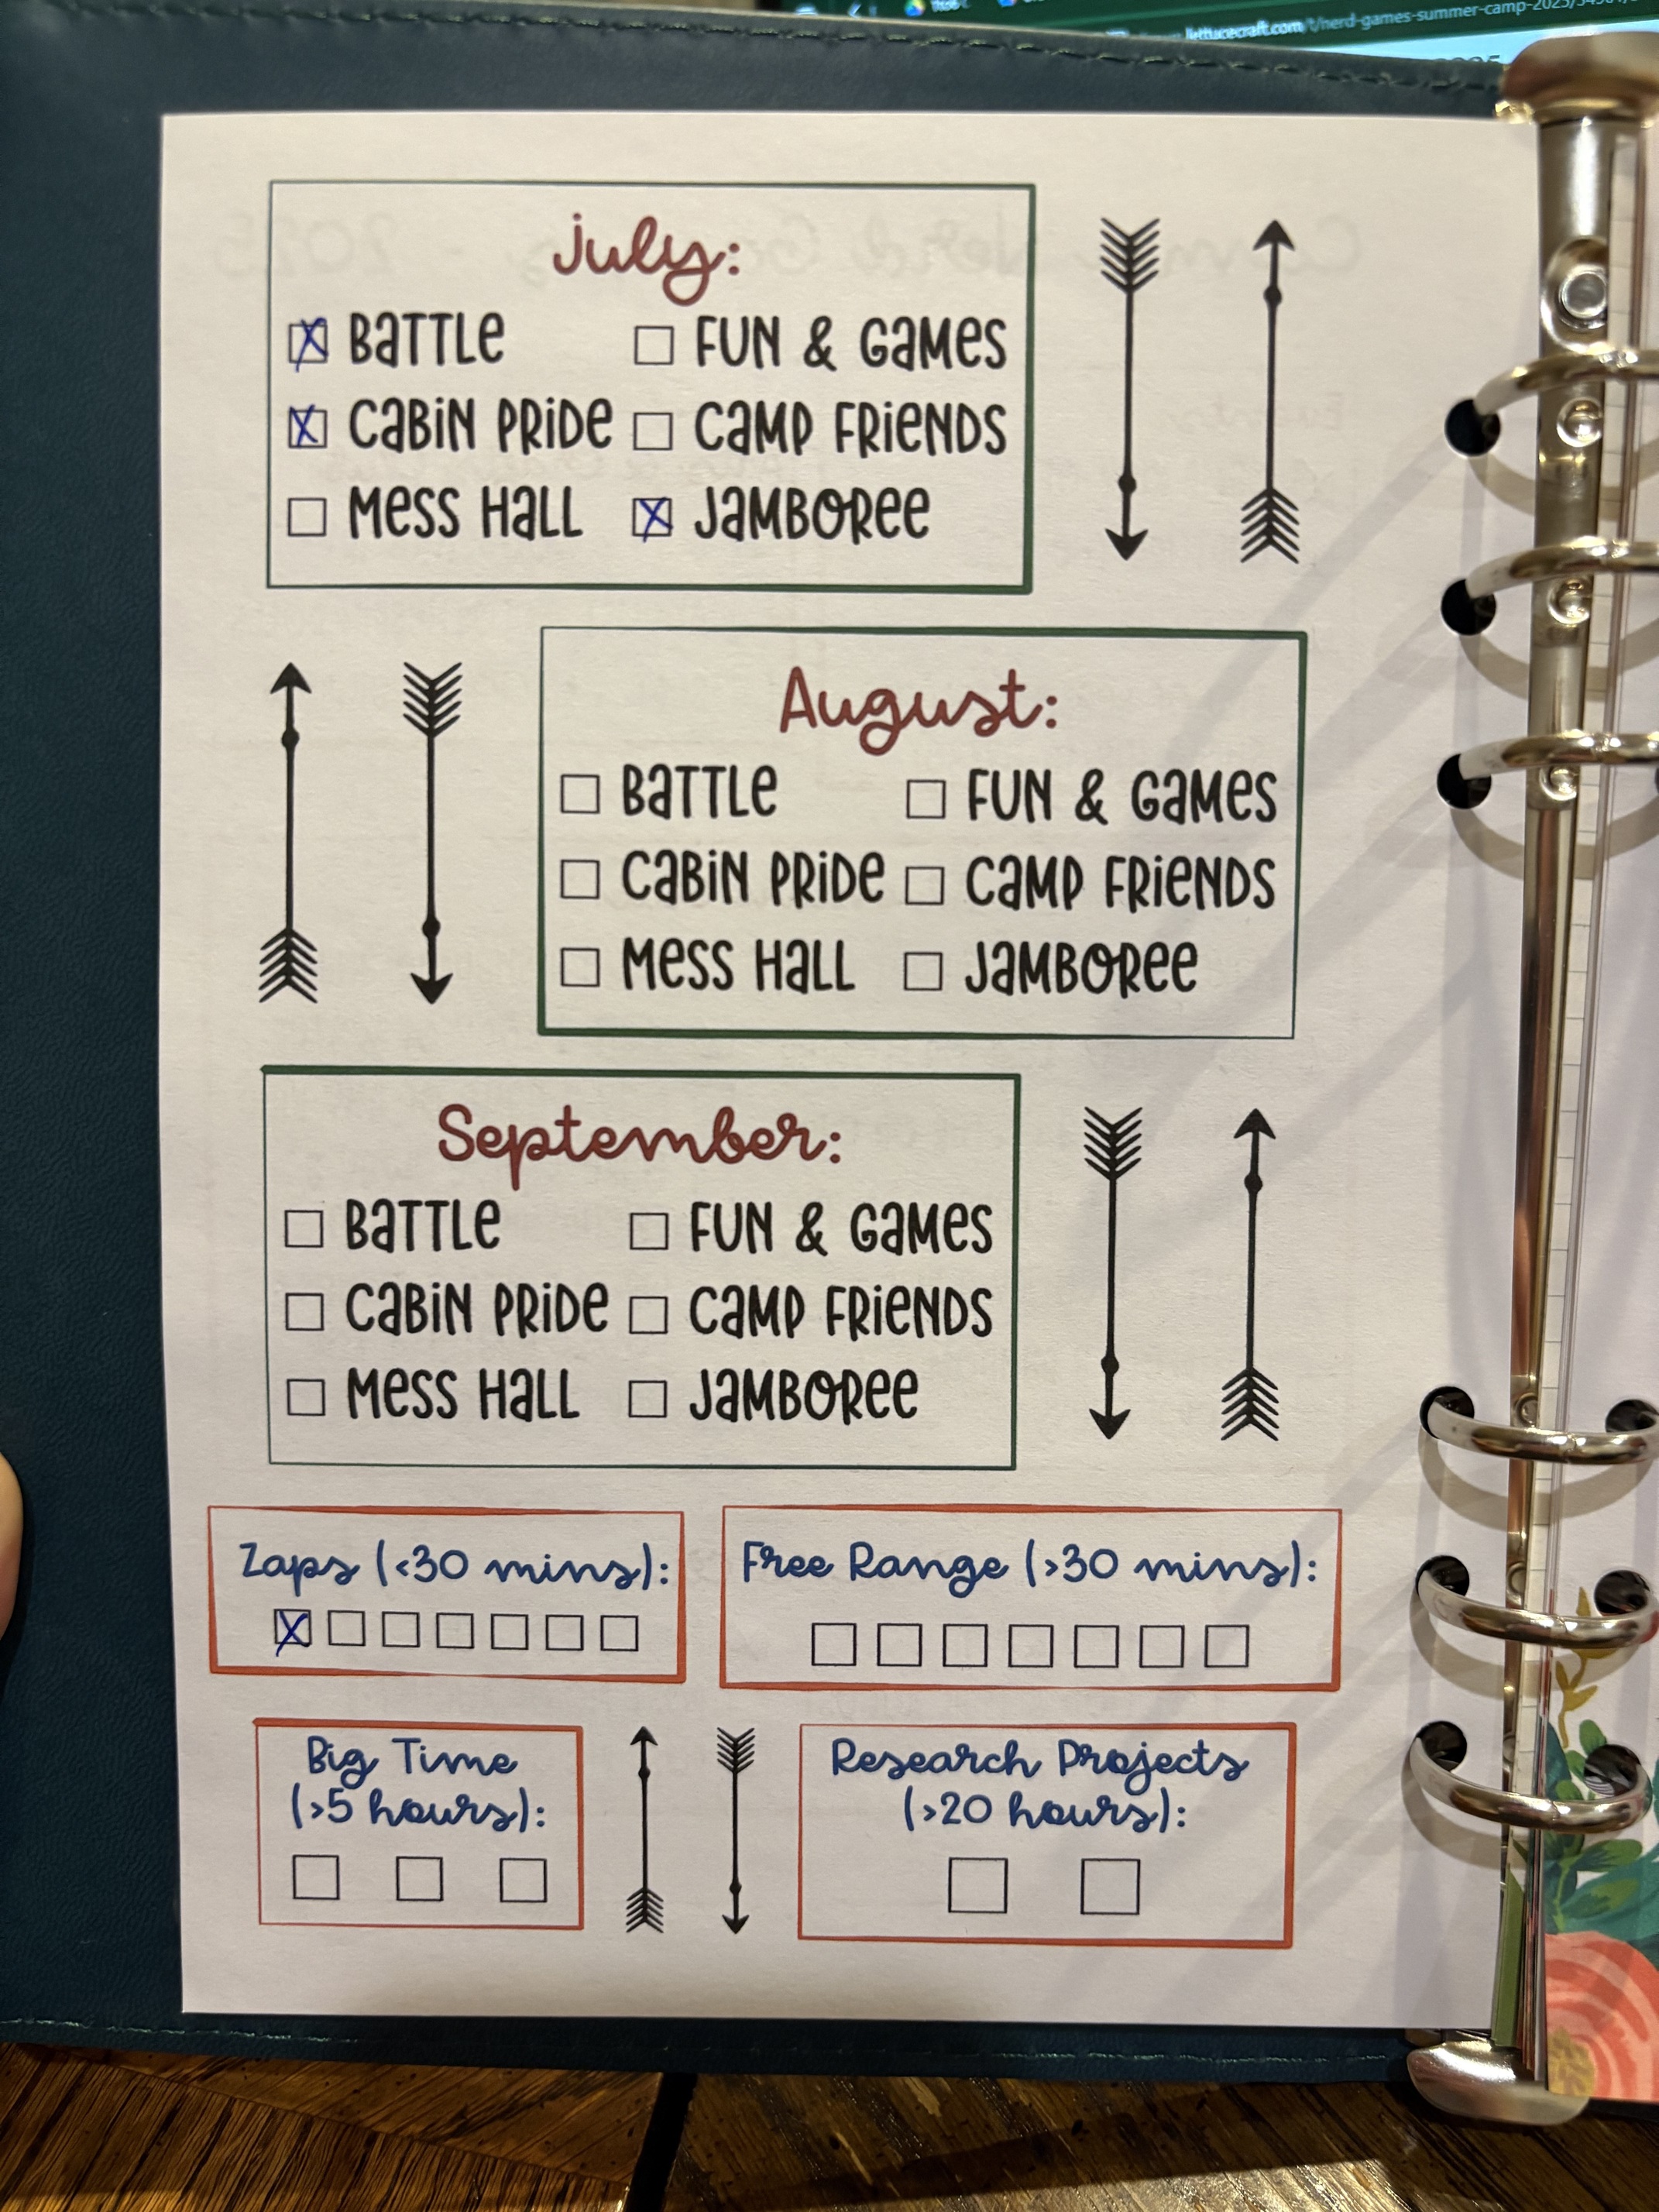 lettucecraft.com/t/nerd-games-summer-camp-2025/
July:
BATTLE
FUN & GAMES
CABIN PRIDE
CAMP FRIENDS
MESS HALL
JAMBOREE
August:
BATTLE
FUN & GAMES
CABIN PRIDE
CAMP FRIENDS
MESS HALL
JAMBOREE
September:
BATTLE
FUN & GAMES
CABIN PRIDE
CAMP FRIENDS
MESS HALL
JAMBOREE
Zaps (<30 mins):
Free Range (>30 mins):
Big Time
(>5 hours):
Research Projects
(>20 hours):